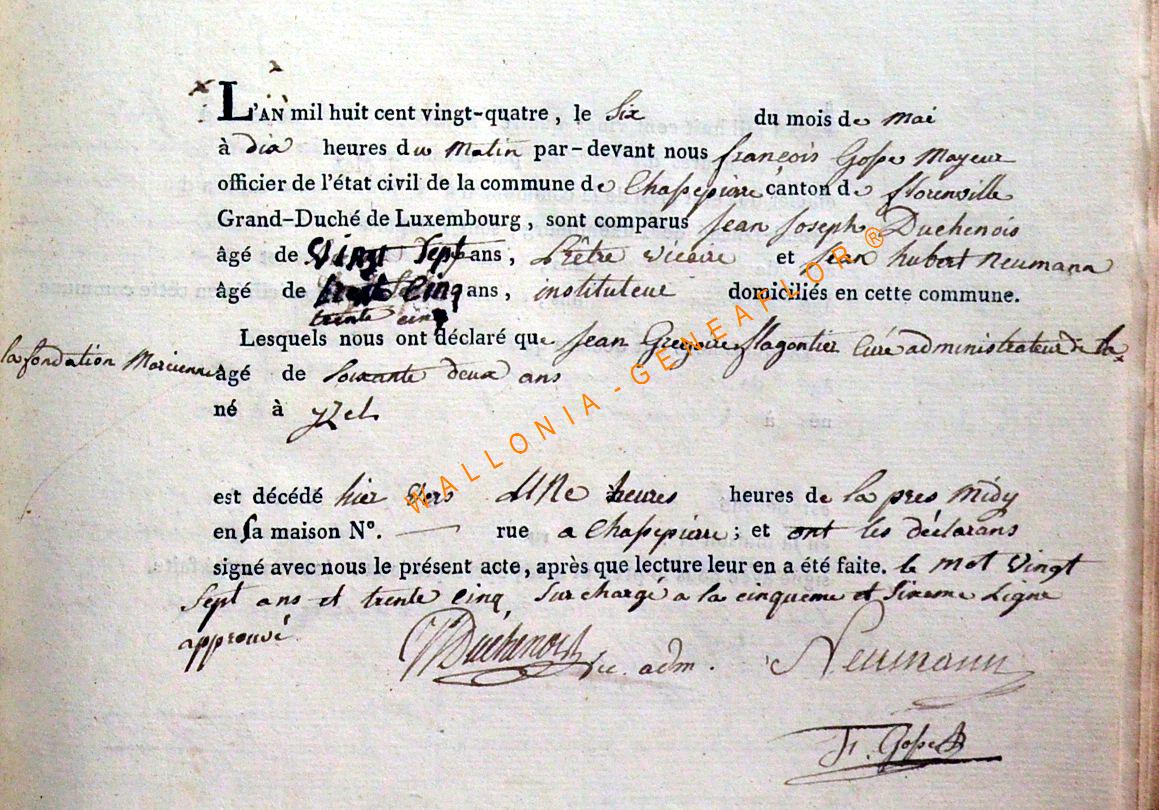 L'AN mil huit cent vingt-quatre, le Six du mois de Mai
à dix heures du Matin par-devant nous françois Gosse Mayeur
officier de l'état civil de la commune de Chassepierre canton de florenville
Grand-Duché de Luxembourg, sont comparus Jean Joseph Duchenois
âgé de Vingt Sept ans, Prêtre Vicaire et Jean hubert Neumann
âgé de trente Cinq ans, instituteur domiciliés en cette commune.
trente cinq
Lesquels nous ont déclaré que Jean Gregoire Magontier Curé administrateur de la
la fondation Marcienne âgé de Soixante deux ans
né à yzel
est décédé hier vers UNe heures heures de la pres Midy
en sa maison N°. — rue a Chassepierre; et ont les déclarans
signé avec nous le présent acte, après que lecture leur en a été faite. le mot Vingt
Sept ans et trente Cinq Surchargé a la cinqueme et Sixeme Ligne
approuvé
Duchenois vic. adm. Neumann
Fr. Gosse
WALLONIA-GENEAFLOR®